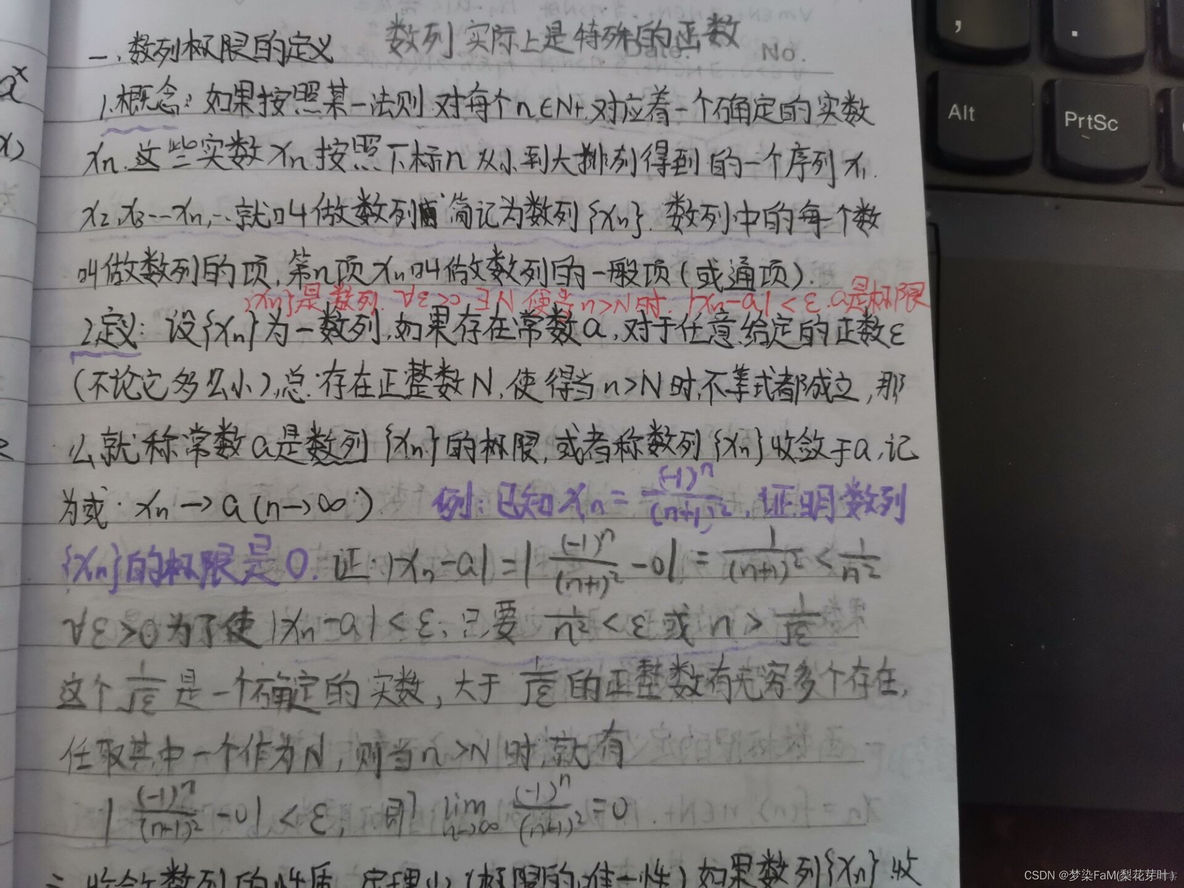 一.数列极限的定义 数列实际上是特殊的函数
No.
1.概念:如果按照某一法则.对每个n∈N+.对应着一个确定的实数
xn.这些实数xn按照下标n从小到大排列得到的一个序列x1.
x2,x3…xn,…就叫做数列 简记为数列{xn}.数列中的每个数
叫做数列的项,第n项xn叫做数列的一般项(或通项).
{xn}是数列 ∀ε<0 ∃N 使当n>N时.|xn-a|<ε.a是极限
2.定义:设{xn}为一数列,如果存在常数a,对于任意给定的正数ε
(不论它多么小),总存在正整数N,使得当n>N时,不等式都成立,那
么就称常数a是数列{xn}的极限,或者称数列{xn}收敛于a,记
为或·xn→a(n→∞) 例:已知xn=(-1)^n/(n+1)^2,证明数列
{xn}的极限是0.证:|xn-a|=|(-1)^n/(n+1)^2-0|=1/(n+1)^2<1/n^2
∀ε>0为了使|xn-a|<ε,只要1/n^2<ε或n>1/√ε
这个1/√ε是一个确定的实数,大于1/√ε的正整数有无穷多个存在,
任取其中一个作为N,则当n>N时,就有
|(-1)^n/(n+1)^2-0|<ε,即lim n→∞ (-1)^n/(n+1)^2=0
二.收敛数列的性质 定理1.(极限的唯一性)如果数列{xn}收
Alt
PrtSc
CSDN @梦染FaM(梨花芽叶)